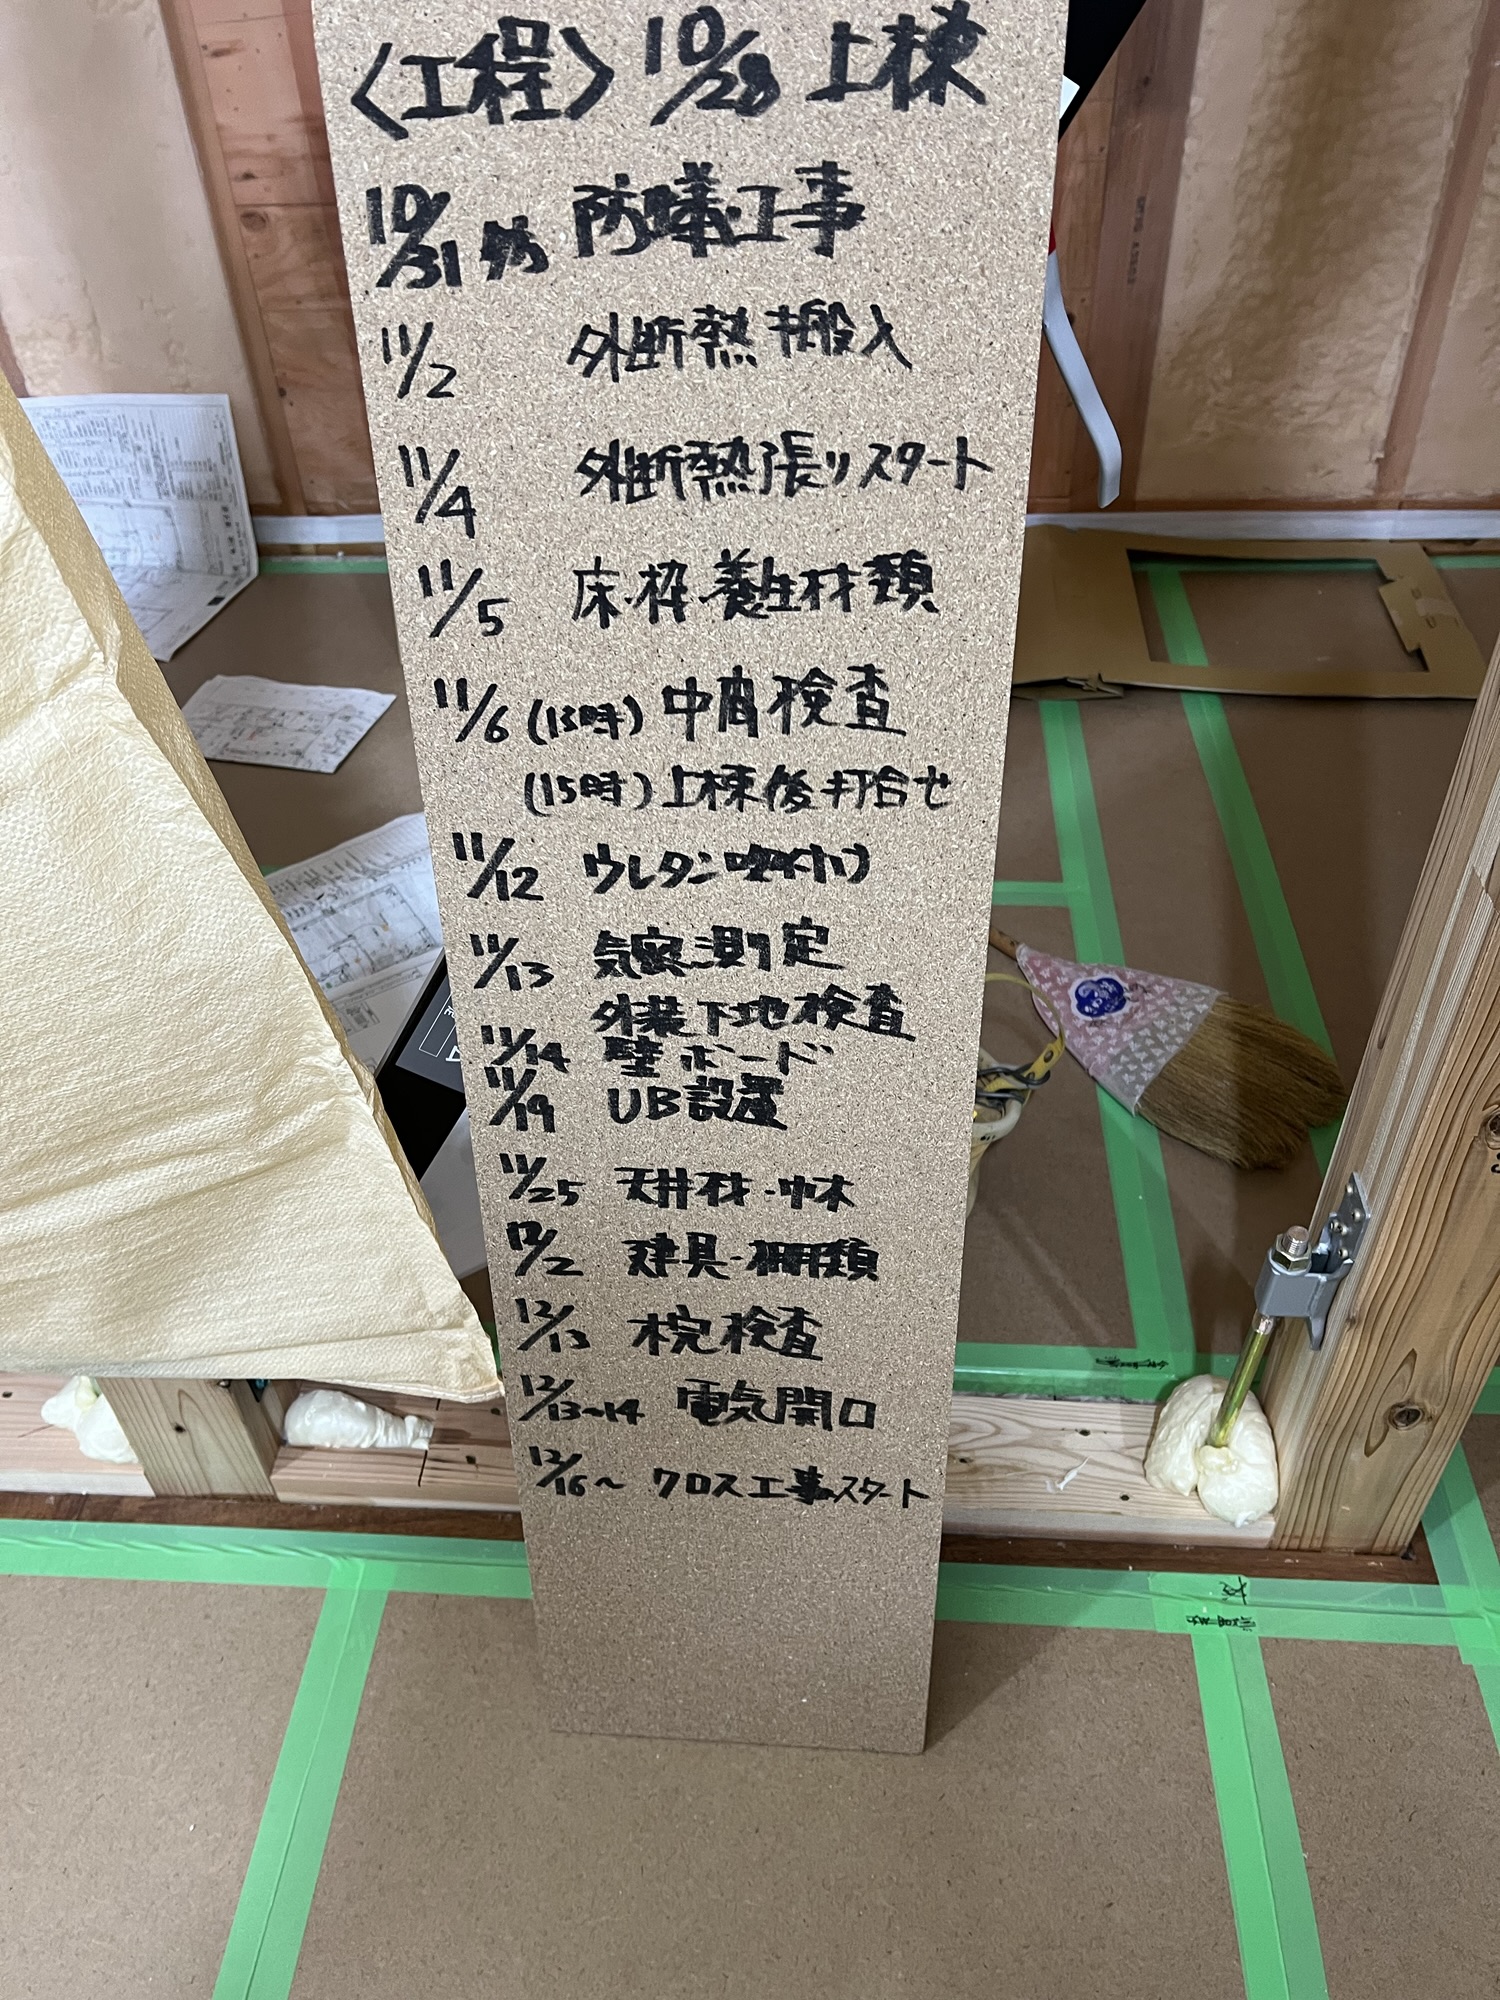 〈工程〉 10/28 上棟
10/31 防蟻工事
11/2 外断熱材搬入
11/4 外断熱張りスタート
11/5 床・枠・養生材類
11/6 (13時) 中間検査
(15時) 上棟後打合せ
11/12 ウレタン吹付
11/13 気密測定
外装下地検査
11/14 壁ボード
11/19 UB設置
11/25 天井材・巾木
12/2 建具・棚類
12/13 木完検査
12/13~14 電気開口
12/16~ クロス工事スタート